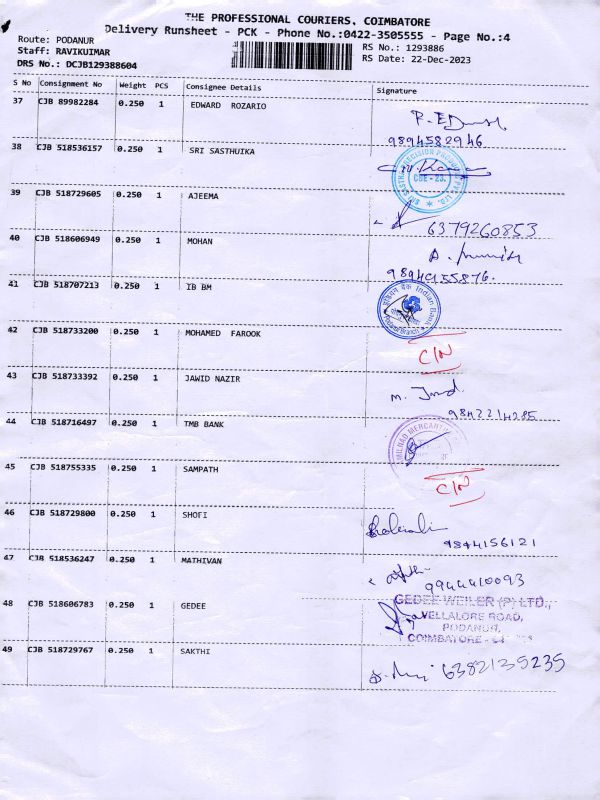 THE PROFESSIONAL COURIERS, COIMBATORE
Delivery Runsheet - PCK - Phone No.:0422-3505555 - Page No.:4
Route: PODANUR
RS No.: 1293886
Staff: RAVIKUIMAR
RS Date: 22-Dec-2023
DRS No.: DCJB129388604
S No Consignment No Weight PCS Consignee Details Signature
37 CJB 89982284 0.250 1 EDWARD ROZARIO
9894582946
38 CJB 518536157 0.250 1 SRI SASTHUIKA
CBE - 23.
39 CJB 518729605 0.250 1 AJEEMA
6379260853
40 CJB 518606949 0.250 1 MOHAN
9894955876.
41 CJB 518707213 0.250 1 IB BM
इंडियन बैंक Indian Bank
42 CJB 518733200 0.250 1 MOHAMED FAROOK
C/N
43 CJB 518733392 0.250 1 JAWID NAZIR
9842214285
44 CJB 518716497 0.250 1 TMB BANK
MERCANTILE
45 CJB 518755335 0.250 1 SAMPATH
C/N
46 CJB 518729800 0.250 1 SHOFI
9844156121
47 CJB 518536247 0.250 1 MATHIVAN
9944410093
48 CJB 518606783 0.250 1 GEDEE
GEDEE WEILER (P) LTD.,
VELLALORE ROAD,
PODANUR,
COIMBATORE -
49 CJB 518729767 0.250 1 SAKTHI
6382135235